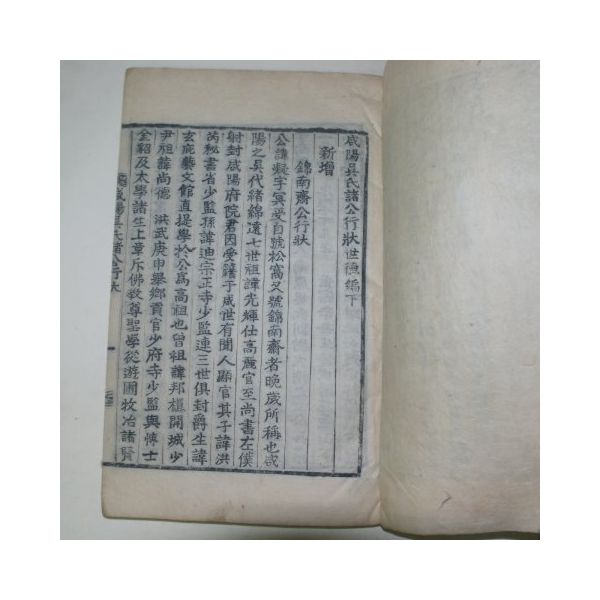 咸陽吳氏諸公行狀世德編下
新增
錦南齋公行狀
公諱凝字冥受自號松窩又號錦南齋者晩歲所稱也咸
陽之吳代緖綿遠七世祖諱光輝仕高麗官至尙書左僕
射封咸陽府院君因受籍于咸世有聞人顯官其子諱洪
芮秘書省少監孫諱迪宗正寺少監連三世俱封爵生諱
玄庇藝文館直提學於公爲高祖也曾祖諱邦植開城少
尹祖諱尙德 洪武庚申擧鄕貢官少府寺少監與博士
金貂及太學諸生上章斥佛敎尊聖學從遊圃牧冶諸賢
咸陽吳氏諸公行狀